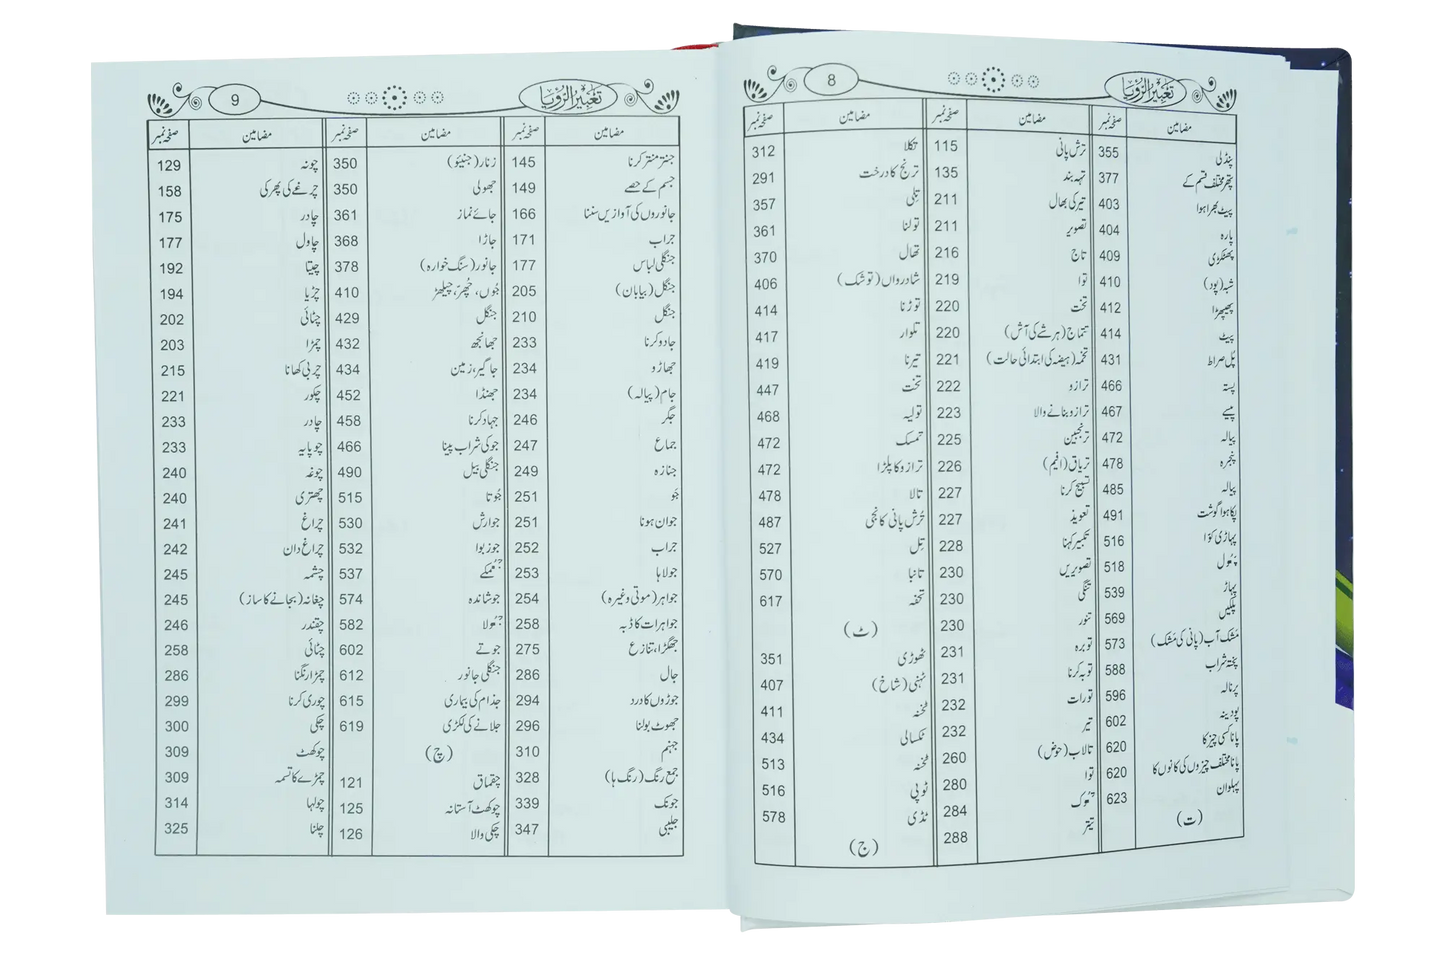 تعبیر الرؤیا
8
مضامین صفحہ نمبر مضامین صفحہ نمبر مضامین صفحہ نمبر
پنڈلی 355
پتھر مختلف قسم کے 377
پیٹ بھرا ہوا 403
پارہ 404
پھٹکڑی 409
شبہ (پود) 410
پھیپھڑا 412
پیٹ 414
پل صراط 431
پستہ 466
پیسے 467
پیالہ 472
پنجرہ 478
پیالہ 485
پکا ہوا گوشت 491
پہاڑی کوّا 516
پھول 518
پہاڑ 539
پلکیں 569
مشک آب (پانی کی مشک) 573
پختہ شراب 588
پرنالہ 596
پودینہ 602
پانا کسی چیز کا 620
پانا مختلف چیزوں کی کانوں کا 620
پہلوان 623
(ت)
ترش پانی 115
تہہ بند 135
تیر کی بھال 211
تصویر 211
تاج 216
توا 219
تخت 220
تتماج (ہر شے کی آش) 220
تخمہ (ہیضہ کی ابتدائی حالت) 221
ترازو 222
ترازو بنانے والا 223
ترنجبین 225
تریاق (افیم) 226
تسبیح کرنا 227
تعویذ 227
تکبیر کہنا 228
تصویریں 230
تنگی 230
تنور 230
توبرہ 231
توبہ کرنا 231
تورات 232
تیر 232
تالاب (حوض) 260
توا 280
تھوک 284
تیتر 288
تکلا 312
ترنج کا درخت 291
تلی 357
تولنا 361
تھال 370
شادرواں (توشک) 406
توڑنا 414
تلوار 417
تیرنا 419
تخت 447
تولیہ 468
تمسک 472
ترازو کا پلڑا 472
تالا 478
ترش پانی کانجی 487
تل 527
تانبا 570
تحفہ 617
(ٹ)
ٹھوڑی 351
ٹہنی (شاخ) 407
ٹخنہ 411
ٹکسالی 434
ٹخنہ 513
ٹوپی 516
ٹڈی 578
(ج)
تعبیر الرؤیا
9
مضامین صفحہ نمبر مضامین صفحہ نمبر مضامین صفحہ نمبر
جنتر منتر کرنا 145
جسم کے حصے 149
جانوروں کی آوازیں سننا 166
جراب 171
جنگلی لباس 177
جنگل (بیابان) 205
جنگل 210
جادو کرنا 233
جھاڑو 234
جام (پیالہ) 234
جگر 246
جماع 247
جنازہ 249
جَو 251
جوان ہونا 251
جراب 252
جولاہا 253
جواہر (موتی وغیرہ) 254
جواہرات کا ڈبہ 258
جھگڑا، تنازع 275
جال 286
جوڑوں کا درد 294
جھوٹ بولنا 296
جہنم 310
جمع رنگ (رنگ ہا) 328
جونک 339
جلیبی 347
زنار (جنیئو) 350
جھولی 350
جائے نماز 361
جاڑا 368
جانور (سنگ خوارہ) 378
جُوں، چُھپّر، چیلھڑ 410
جنگل 429
جھانجھ 432
جاگیر، زمین 434
جھنڈا 452
جہاد کرنا 458
جو کی شراب پینا 466
جنگلی بیل 490
جُوتا 515
جوارش 530
جوز بوا 532
جھمکے 537
جوشاندہ 574
جھولا 582
جوتے 602
جنگلی جانور 612
جذام کی بیماری 615
جلانے کی لکڑی 619
(چ)
چقماق 121
چوکھٹ آستانہ 125
چکی والا 126
چونہ 129
چرغے کی پھرکی 158
چادر 175
چاول 177
چیتا 192
چڑیا 194
چٹائی 202
چمڑا 203
چربی کھانا 215
چکور 221
چادر 233
چوپایہ 233
چوغہ 240
چھتری 240
چراغ 241
چراغ دان 242
چشمہ 245
چغانہ (بجانے کا ساز) 245
چقندر 246
چٹائی 258
چمڑا رنگنا 286
چوری کرنا 299
چکی 300
چوکھٹ 309
چمڑے کا تسمہ 309
چولہا 314
چلنا 325